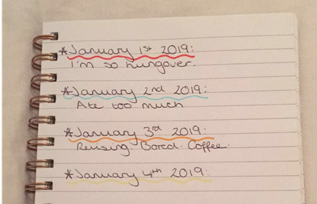 *January 1st 2019:
I'm so hungover.
*January 2nd 2019:
Ate too much
*January 3rd 2019:
Revising. Bored. Coffee.
*January 4th 2019: